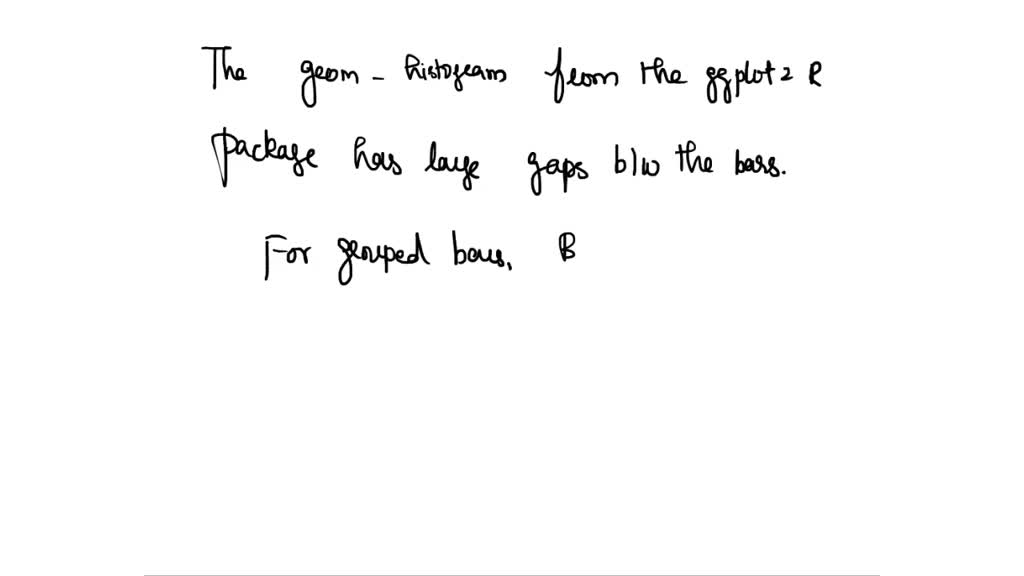 The geom - histogram from the ggplot2 R
package has large gaps b/w the bars.
For grouped bars, B